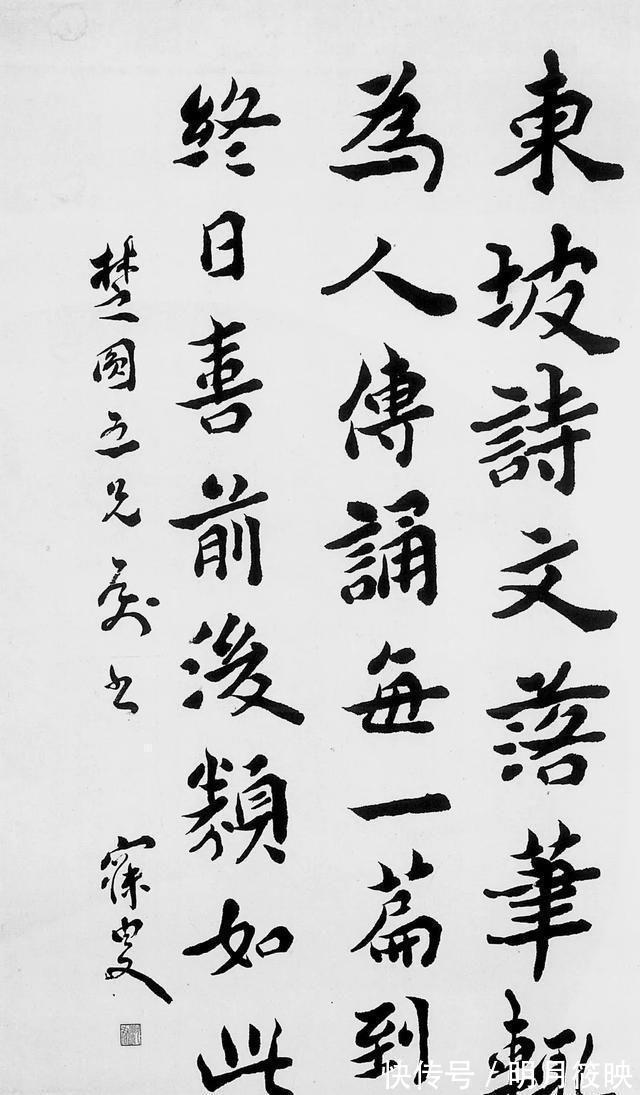 東坡詩文落筆輒
為人傳誦每一篇到
終日喜前後類如此
楚園五兄屬書 寐叟
快传号 / 明月筱映